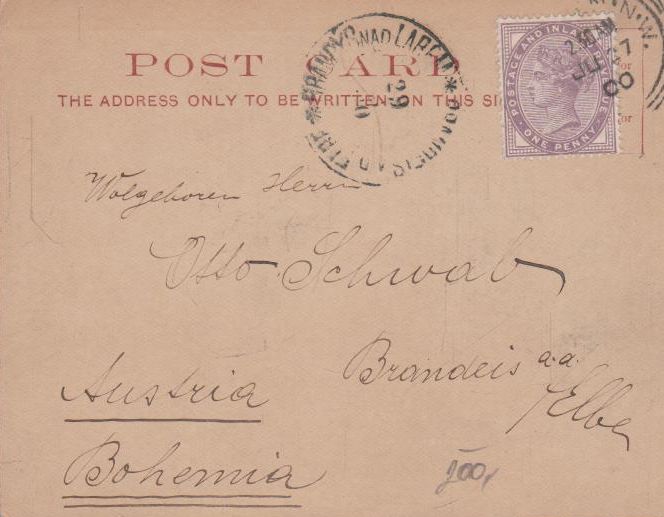 POST CARD
THE ADDRESS ONLY TO BE WRITTEN ON THIS SI
POSTAGE AND INLAND
ONE PENNY
N.W.
00
BRANDÝS NAD LABEM
29
Wolgeboren Herrn
Otto Schwab
Brandeis a.a.
Elbe
Austria
Bohemia
200,